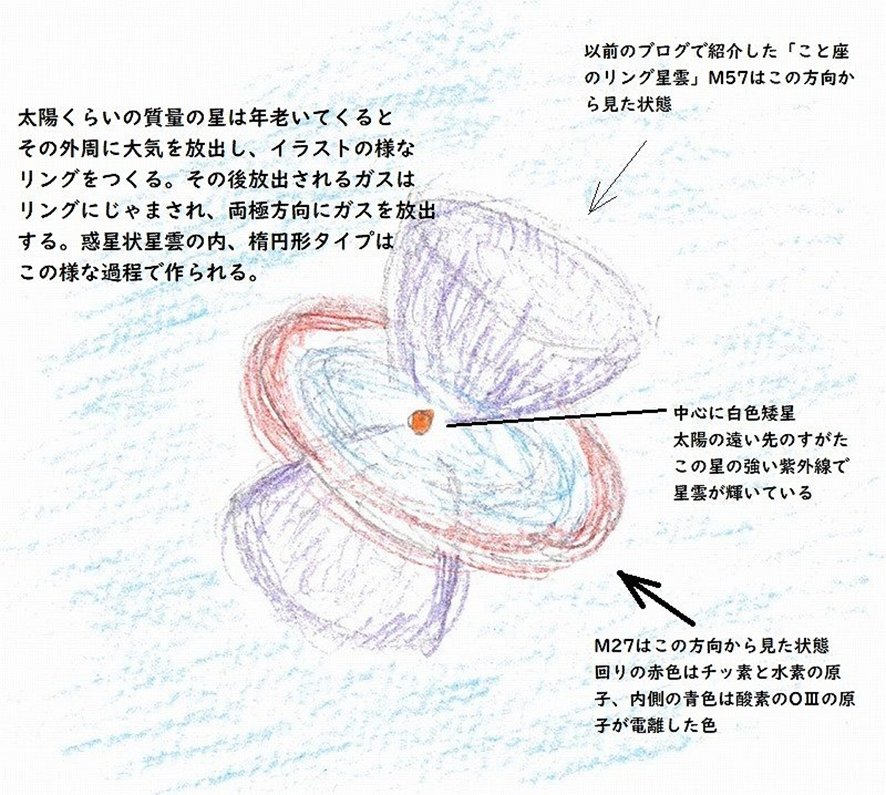 以前のブログで紹介した「こと座
のリング星雲」M57はこの方向か
ら見た状態
太陽くらいの質量の星は年老いてくると
その外周に大気を放出し、イラストの様な
リングをつくる。その後放出されるガスは
リングにじゃまされ、両極方向にガスを放出
する。惑星状星雲の内、楕円形タイプは
この様な過程で作られる。
中心に白色矮星
太陽の遠い先のすがた
この星の強い紫外線で
星雲が輝いている
M27はこの方向から見た状態
回りの赤色はチッ素と水素の原
子、内側の青色は酸素のOⅢの原
子が電離した色